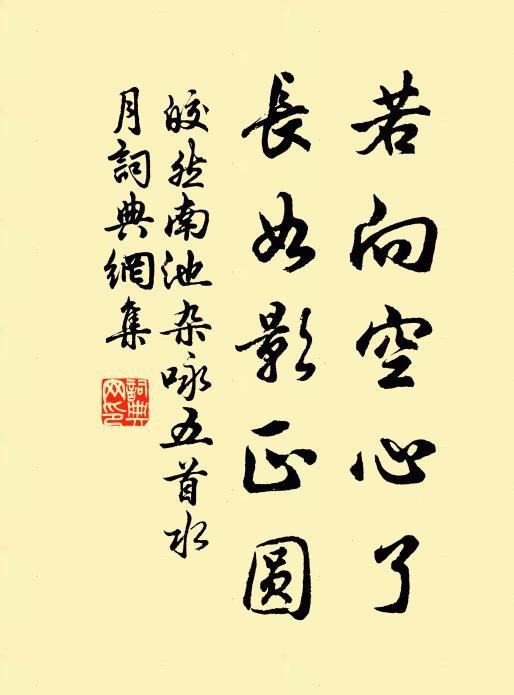 若向空心了
長如影正圓
皎然南池杂咏五首水
月詞典網集
詞典网印